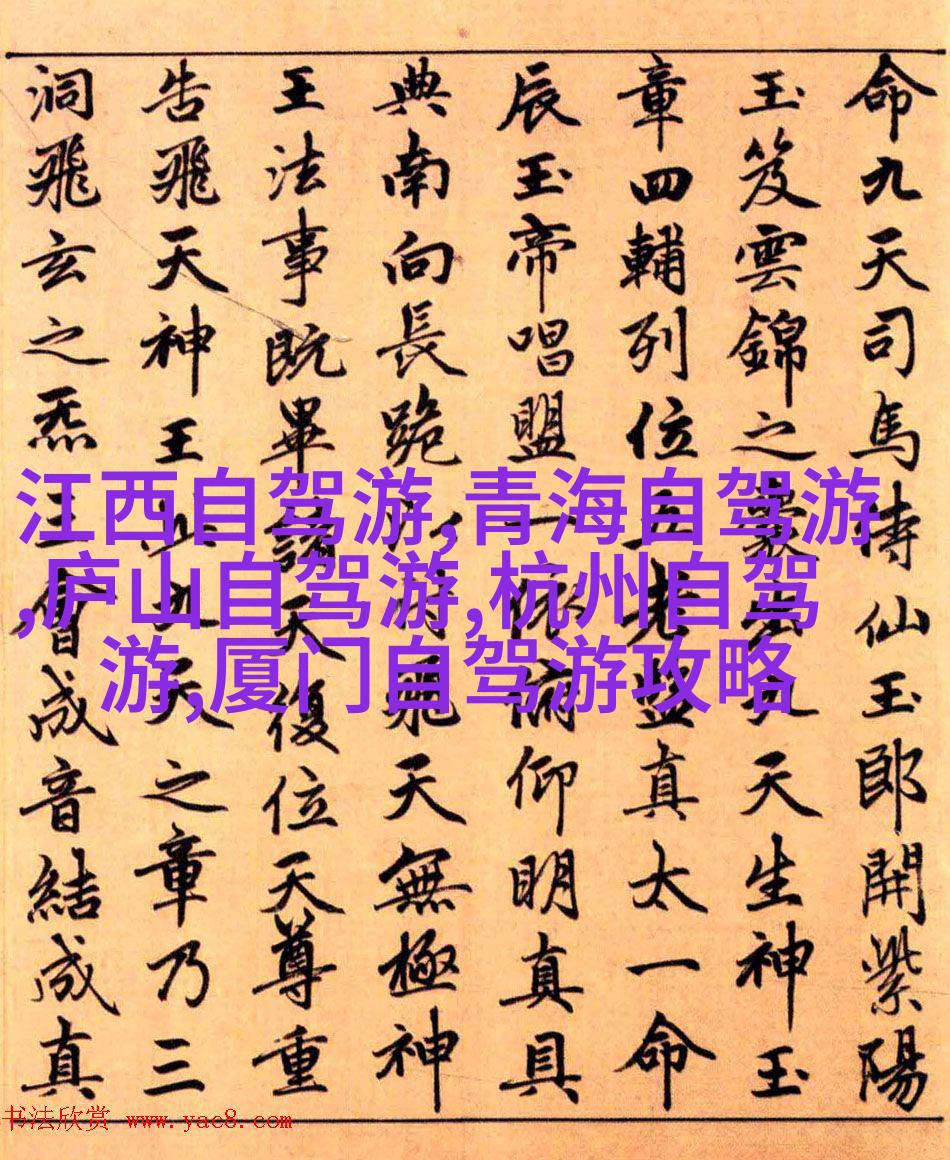 命九天司馬侍仙玉郎開紫陽
玉笈雲錦之囊出九天生神玉
章四輔列位五老監真太一命
辰玉帝唱盟一依俯仰明真具
典南向長跪以付飛天無極神
王法事既畢諸天復位天尊重
告飛天神王此九天之章乃三
洞飛玄之炁三會成音結成真
江西自驾游,青海自驾游
,庐山自驾游,杭州自驾
游,厦门自驾游攻略
书法欣赏 www.yac8.com